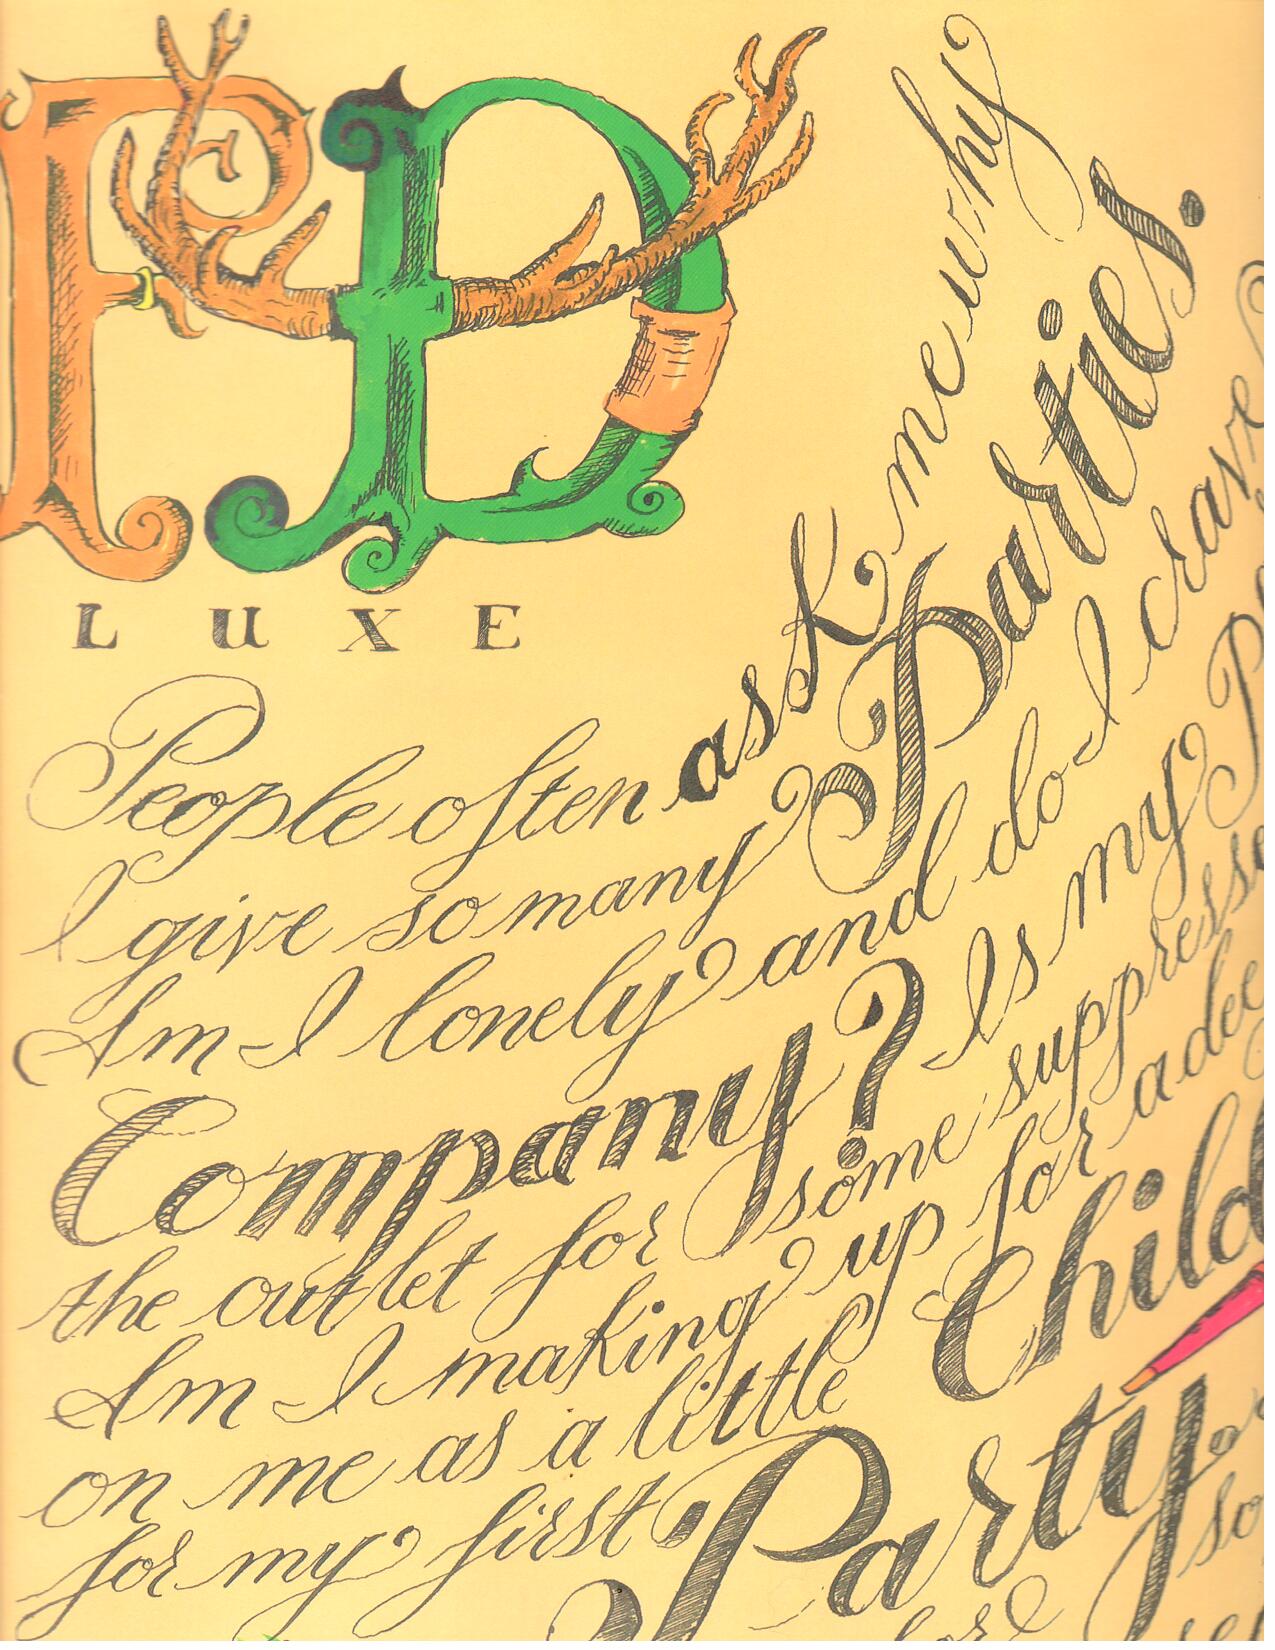 D
LUXE
People often ask me why
I give so many Parties.
Am I lonely and do I crave
Company? Is my P
the outlet for some suppresse
Am I making up for a dee
on me as a little Child
for my first Party
so